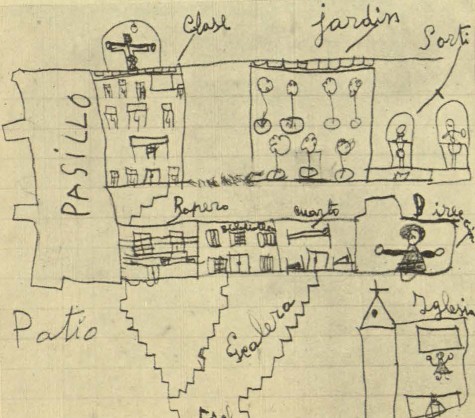 Clase
jardin
Porti
PASILLO
Ropero
cuarto
Direc
Patio
Escalera
Iglesia